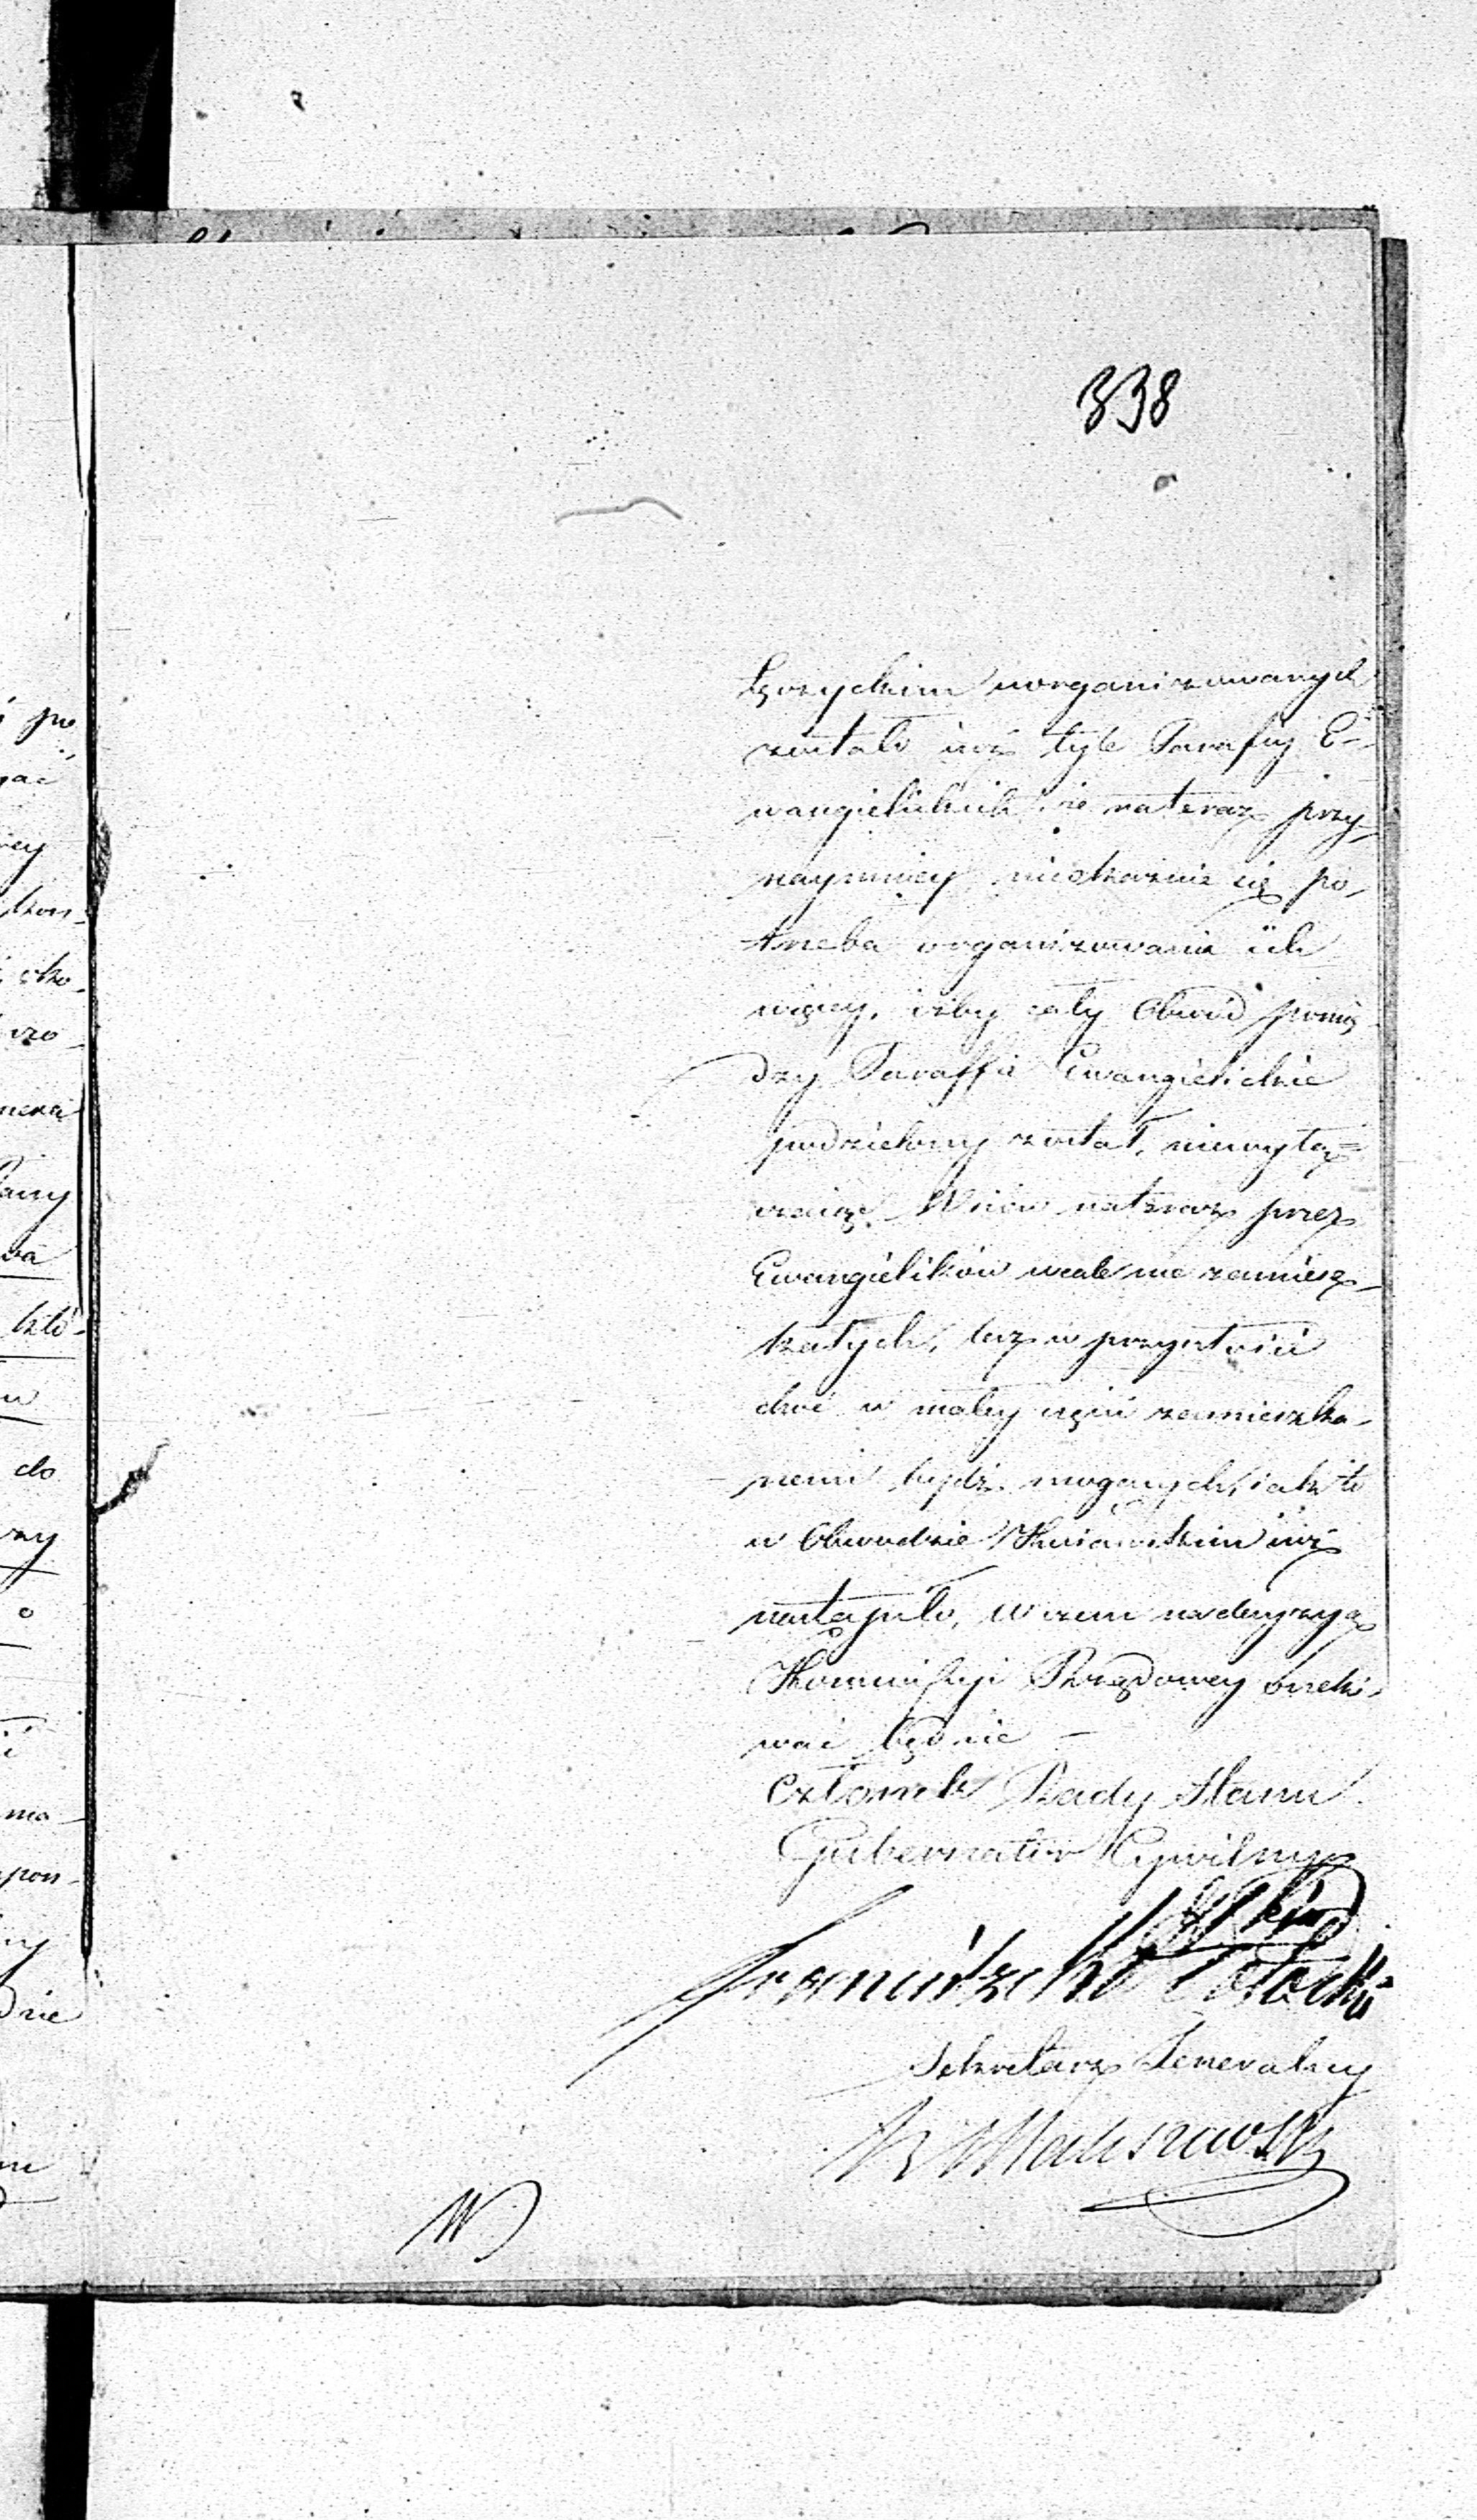 338
Łęczyckim uorganizowanych
zostało iuż tyle Parafiy E-
wangielickich, że na teraz przy-
naymniey nieokażuie się po-
trzeba organizowania ich
więcey, iżby cały Obwód pomię-
dzy Paraffie Ewangielickie
podzielony został, niewyłą-
czaiąc Wsiów na teraz przez
Ewangielików wcale nie zamiesz-
kałych, lecz w przyszłości
choć w małey części zamieszka-
nemi bydź mogących, iak to
w Obwodzie Kuiawskim iuż
nastąpiło, w czem
Kommissyi Rządowey oczeki-
wać będzie —
Członek Rady Stanu
Gubernator Cywilny
Sekretarz Jeneralny